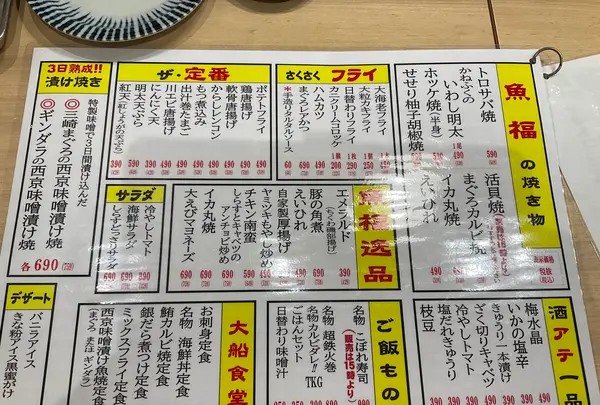 魚福の焼き物
トロサバ焼 590
かねふくの
いわし明太 490
ホッケ焼(半身)
せせり柚子胡椒焼
活貝焼
まぐろカルビ焼
イカ丸焼
えいひれ
さくさくフライ
大海老フライ
大粒カキフライ
日替わりフライ
カニクリームコロッケ
ハムカツ
まぐろレアカツ
*手造りタルタルソース 60
ザ・定番
ポテトフライ 490
鶏唐揚げ 490
軟骨唐揚げ 490
からしレンコン 490
もつ煮込み 490
出汁巻たまご 490
川エビ唐揚げ 490
にんにく天 390
明太天ぷら
紅天(紅しょうがの天ぷら) 390
3日熟成!!
漬け焼き
特製味噌で3日間漬け込んだ
◎三崎まぐろの西京味噌漬け焼
◎ギンダラの西京味噌漬け焼
各690(759)
魚福逸品
エメラルド
(ちくわ磯部揚げ) 390
豚の角煮
えいひれ
自家製厚揚げ
ヤミツキもやし炒め
チキン南蛮
しらすとキャベツの
アンチョビ炒め
イカ丸焼
大えびマヨネーズ
サラダ
冷やしトマト
海鮮サラダ
しらすどっさりサラダ
酒アテ一品
梅水晶
いかの塩辛
きゅうり一本漬け
ざく切りキャベツ
冷やしトマト
塩だれきゅうり
枝豆
ご飯もの
名物 こぼれ寿司
(販売は15時より)
名物 超鉄火巻
名物 カルビダレ!!TKG
ごはんセット
日替わり味噌汁
大船食堂
お刺身定食
名物 海鮮丼定食
鮪カルビ焼定食
銀だら煮つけ定食
ミックスフライ定食
西京味噌漬け魚焼定食
デザート
バニラアイス
きな粉アイス黒蜜がけ